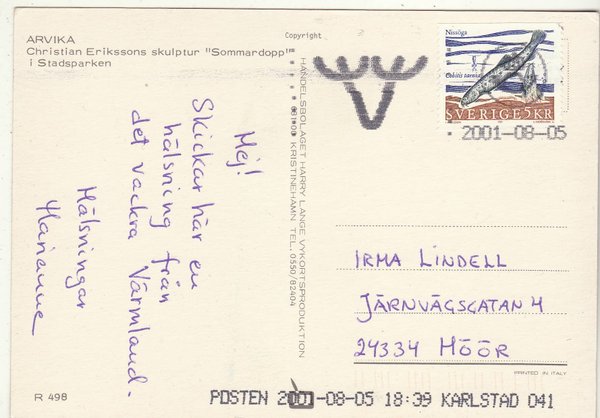 ARVIKA
Christian Erikssons skulptur "Sommardopp"
i Stadsparken
Copyright
Nissöga
Cobitis taenia
SVERIGE 5 KR
2001-08-05
Hej!
Skickar här en
hälsning från
det vackra Värmland.
Hälsningar
Marianne
HANDELSBOLAGET HARRY LANGE VYKORTSPRODUKTION
681 00 KRISTINEHAMN TEL. 0550/82404
IRMA LINDELL
JÄRNVÄGSGATAN 4
24334 HÖÖR
PRINTED IN ITALY
R 498
POSTEN 2001-08-05 18:39 KARLSTAD 041